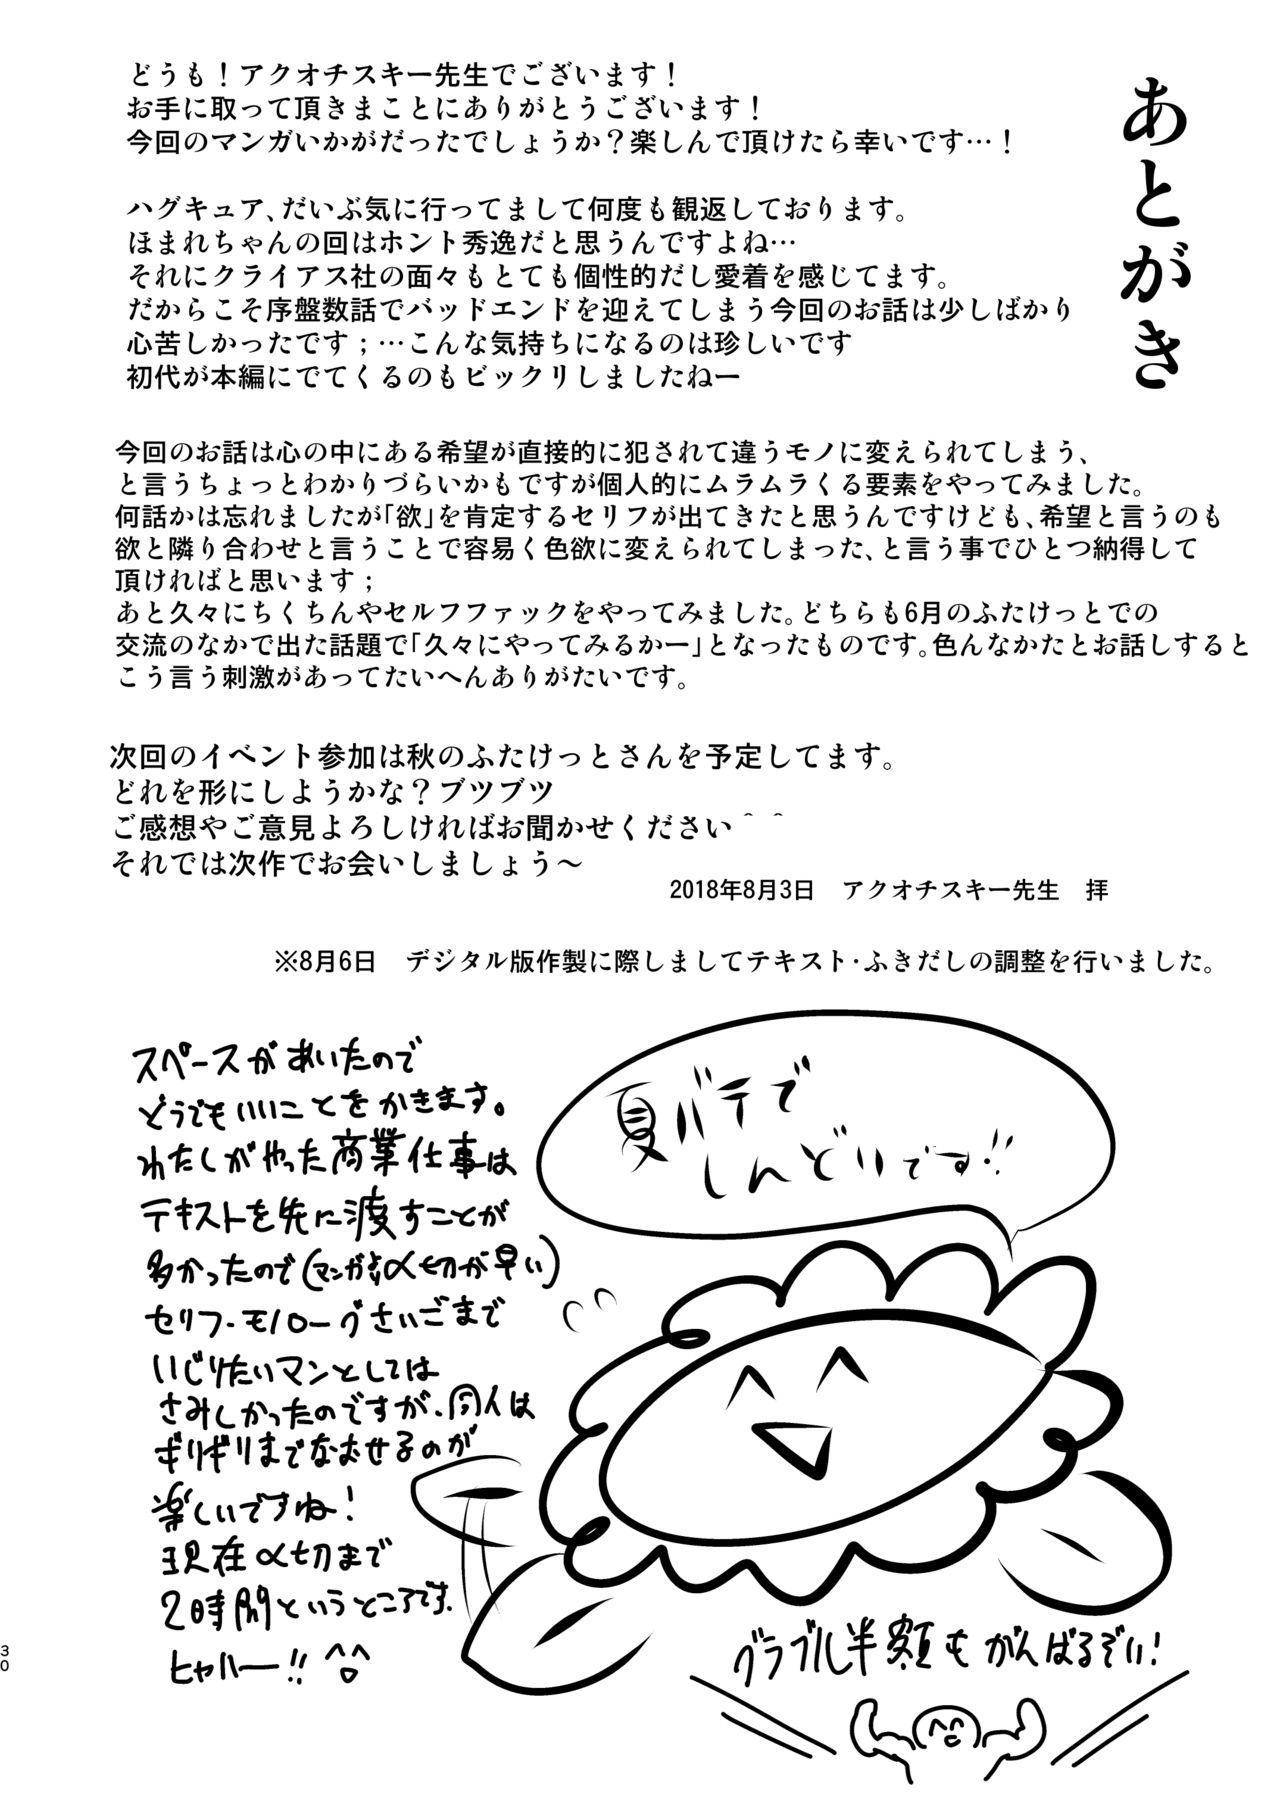 あとがき
どうも！アクオチスキー先生でございます！
お手に取って頂きまことにありがとうございます！
今回のマンガいかがだったでしょうか？楽しんで頂けたら幸いです…！
ハグキュア、だいぶ気に行ってまして何度も観返しております。
ほまれちゃんの回はホント秀逸だと思うんですよね…
それにクライアス社の面々もとても個性的だし愛着を感じてます。
だからこそ序盤数話でバッドエンドを迎えてしまう今回のお話は少しばかり
心苦しかったです；…こんな気持ちになるのは珍しいです
初代が本編にでてくるのもビックリしましたねー
今回のお話は心の中にある希望が直接的に犯されて違うモノに変えられてしまう、
と言うちょっとわかりづらいかもですが個人的にムラムラくる要素をやってみました。
何話かは忘れましたが「欲」を肯定するセリフが出てきたと思うんですけども、希望と言うのも
欲と隣り合わせと言うことで容易く色欲に変えられてしまった、と言う事でひとつ納得して
頂ければと思います；
あと久々にちくちんやセルフファックをやってみました。どちらも6月のふたけっとでの
交流のなかで出た話題で「久々にやってみるかー」となったものです。色んなかたとお話しすると
こう言う刺激があってたいへんありがたいです。
次回のイベント参加は秋のふたけっとさんを予定してます。
どれを形にしようかな？ブツブツ
ご感想やご意見よろしければお聞かせください＾＾
それでは次作でお会いしましょう～
2018年8月3日　アクオチスキー先生　拝
※8月6日　デジタル版作製に際しましてテキスト・ふきだしの調整を行いました。
スペースがあいたので
どうでもいいことをかきます。
わたしがやった商業仕事は
テキストを先に渡すことが
多かったので(マンガより〆切が早い)
セリフ・モノローグさいごまで
いじりたいマンとしては
さみしかったのですが、同人は
ギリギリまでなおせるのが
楽しいですね！
現在〆切まで
2時間というところです。
ヒャハー!! ^^
夏バテで
しんどいです!!
グラブル半額もがんばるぞい!
30